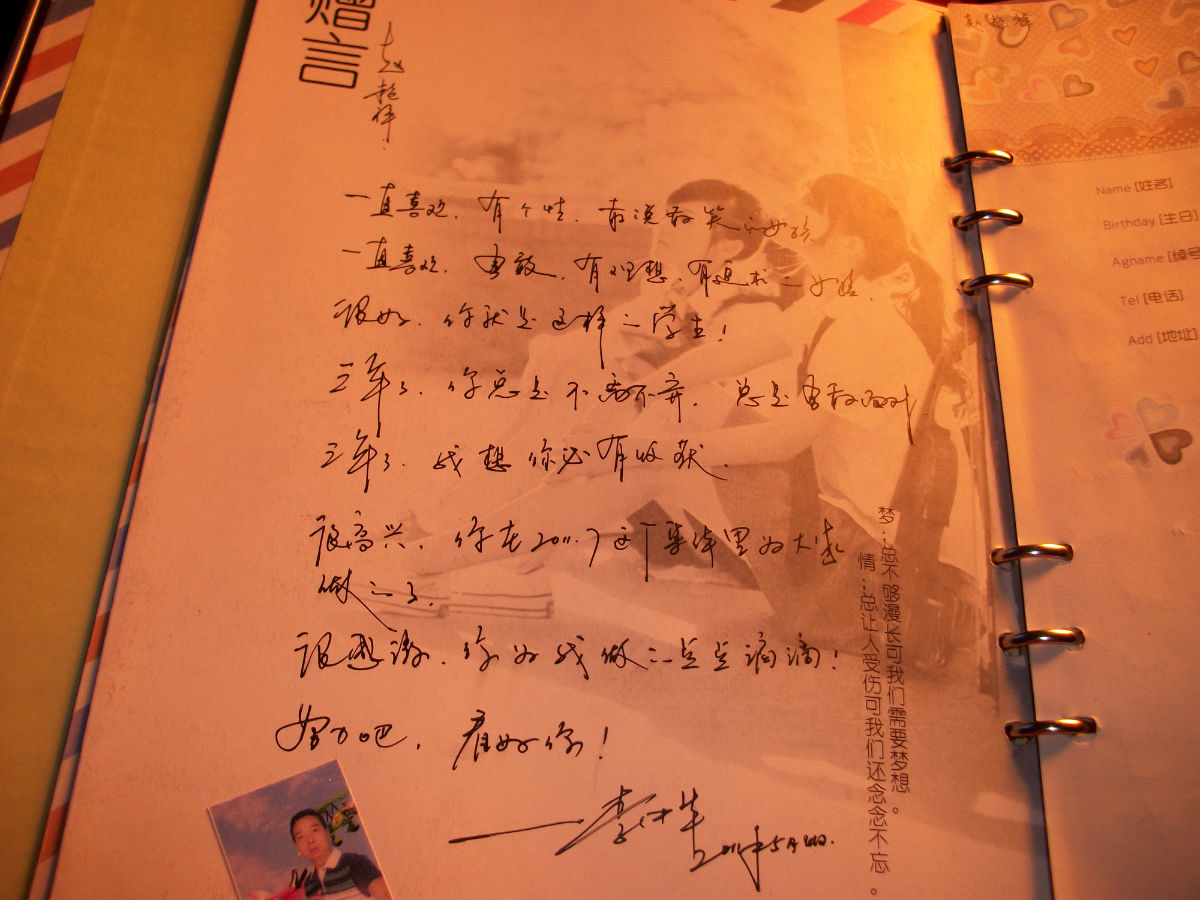 赠言
赵艳祥：
一直喜欢，有个性，敢说敢笑的女孩
一直喜欢，勇敢，有理想，有追求的女孩，
很好，你就是这样的学生！
三年了，你总是不离不弃，总是勇敢面对，
三年了，我想你必有收获，
很高兴，你在2011.7这个集体里为大家
做的了，
很感谢，你为我做的点点滴滴！
努力吧，看好你！
2011年5月
梦：总不够漫长可我们需要梦想。
情：总让人受伤可我们还念念不忘。
Name [姓名]
Birthday [生日]
Agname [绰号
Tel [电话]
Add [地址]